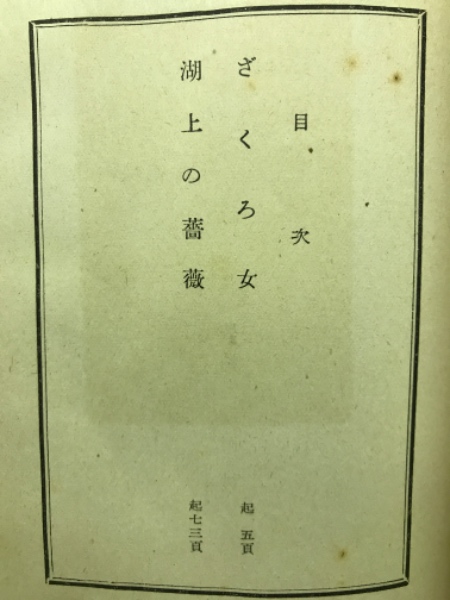 目次
ざくろ女 起五頁
湖上の薔薇 起七三頁